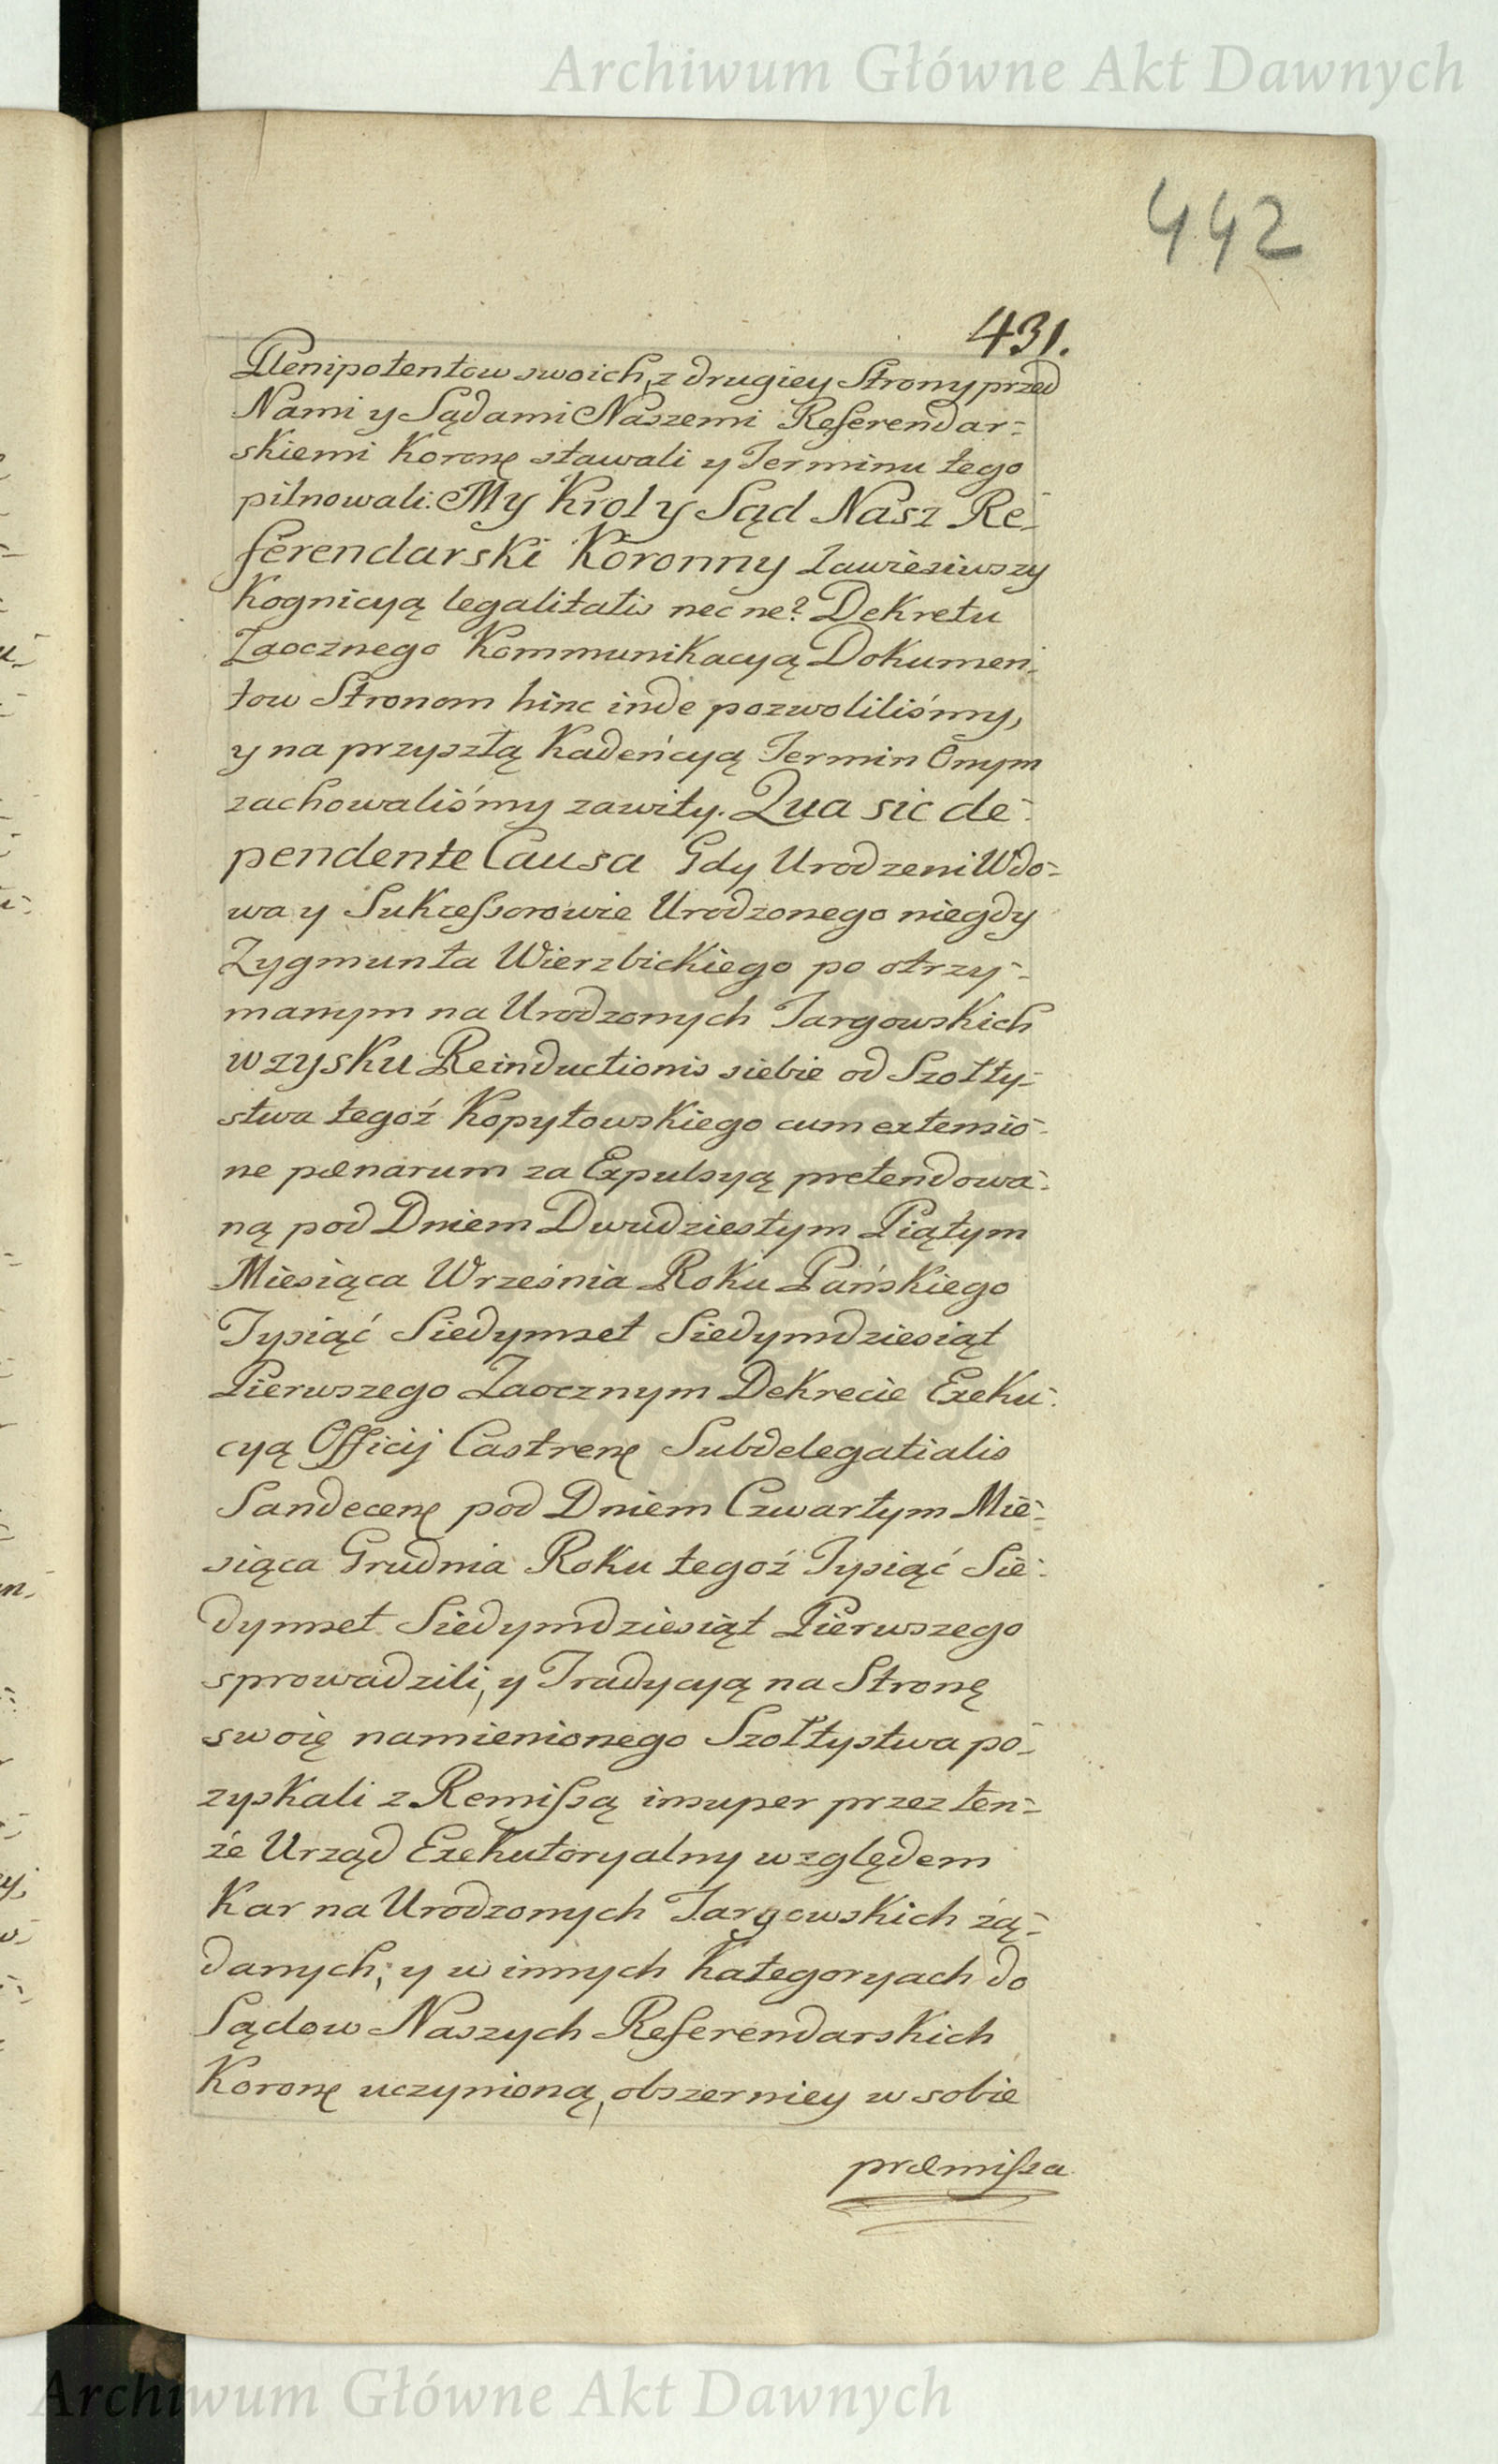 Archiwum Główne Akt Dawnych
442
431.
Plenipotentow swoich, z drugiey Strony przed
Nami y Sądami Naszemi Referendar-
skiemi Koronę stawali y Terminu tego
pilnowali: My Krol y Sąd Nasz Re-
ferendarski Koronny zawiesiwszy
Kognicyą legalitatis nec ne? Dekretu
Zaocznego Kommunikacyą Dokumen-
tow Stronom hinc inde pozwoliliśmy,
y na przyszłą Kadeńcyą Termin Onym
zachowaliśmy zawity. Qua sic de-
pendente Causa Gdy Urodzeni Wdo-
wa y Sukcessorowie Urodzonego niegdy
Zygmunta Wierzbickiego po otrzy-
manym na Urodzonych Targowskich
w zysku Reinductionis siebie od Szołty-
stwa tegoż Kopytowskiego cum extensio-
ne pœnarum za Expulsyą pretendowa-
ną pod Dniem Dwudziestym Piątym
Miesiąca Września Roku Pańskiego
Tysiąć Siedymset Siedymdziesiąt
Pierwszego Zaocznym Dekrecie Exeku-
cyą Officij Castrenę Subdelegatialis
Sandecenę pod Dniem Czwartym Mie-
siąca Grudnia Roku tegoż Tysiąć Sie-
dymset Siedymdziesiąt Pierwszego
sprowadzili, y Tradycyą na Stronę
swoię namienionego Szołtystwa po-
zyskali z Remissą insuper przez ten-
że Urząd Exekutoryalny względem
Kar na Urodzonych Targowskich żą-
danych; y w innych Kategoryach do
Sądow Naszych Referendarskich
Koronę uczynioną, obszerniey w sobie
præmissa
Archiwum Główne Akt Dawnych